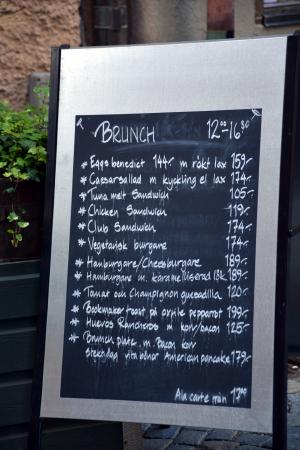 BRUNCH 12⁰⁰-16³⁰
* Eggs benedict 144:- m rökt lax 159:-
* Caesarsallad m kyckling el lax 174:-
* Tuna melt Sandwich 105:-
* Chicken Sandwich 119:-
* Club Sandwich 174:-
* Vegetarisk burgare 174:-
* Hamburgare/Cheesburgare 189:-
* Hamburgare m. karamelliserad lök 189:-
* Tomat och Champignon quesadilla 120:-
* Bookmaker toast på grylle pepparrot 199:-
* Hueros Rancheros m korv/bacon 125:-
* Brunch plate m. Bacon korv
stekt ägg vita bönor American pancake 179:-
Ala carte från 17⁰⁰